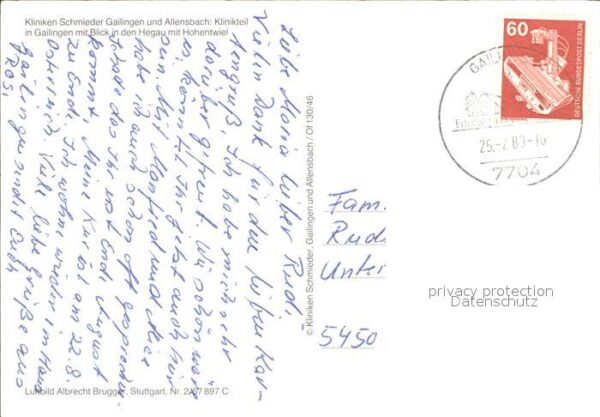 Kliniken Schmieder Gailingen und Allensbach: Klinikteil
in Gailingen mit Blick in den Hegau mit Hohentwiel
Liebe Maria lieber Rudi,
Vielen Dank für den lieben Kar-
tengruß. Ich habe mich sehr
darüber gefreut. Wie schön wäre
es, könntet Ihr jetzt auch hier
sein. Mit Manfred und
hab ich auch schon oft gesprochen.
Schade das Ihr erst Ende August
kommt. Meine Kur ist am 22.8.
zu Ende. Ich wohne wieder im Haus
Viele liebe Grüße aus
Gailingen sendet Euch
Rosi
© Kliniken Schmieder, Gailingen und Allensbach / Of 130/46
Luftbild Albrecht Brugger, Stuttgart, Nr. 2/37 897 C
60
DEUTSCHE BUNDESPOST BERLIN
GAILI
25.-7.89-16
7704
Fam.
Rudi
Unter
5450
privacy protection
Datenschutz